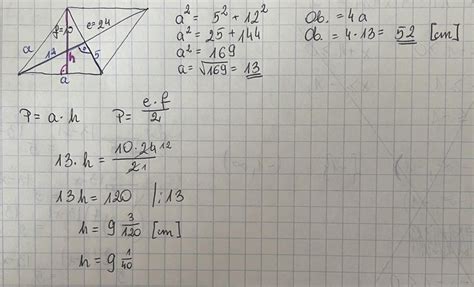 f=10 e=24
a 12 h 5
a
a² = 5² + 12²
a² = 25 + 144
a² = 169
a = √169 = 13
Ob. = 4a
Ob. = 4·13 = 52 [cm]
P = a·h P = e·f/2
13·h = 10·24 12/2 1
13h = 120 /:13
h = 9 3/120 [cm]
h = 9 1/40